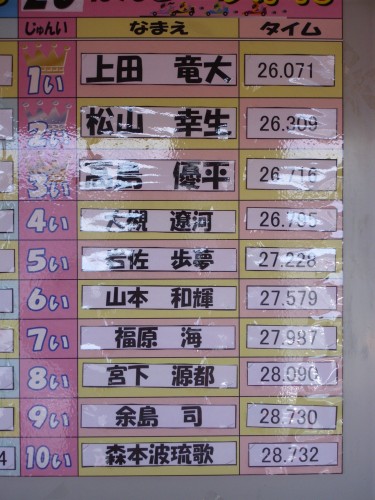 じゅんい なまえ タイム
1い 上田 竜大 26.071
2い 松山 幸生 26.309
3い 高島 優平 26.716
4い 大槻 遼河 26.795
5い 岩佐 歩夢 27.228
6い 山本 和輝 27.579
7い 福原 海 27.987
8い 宮下 源都 28.090
9い 余島 司 28.730
10い 森本波琉歌 28.732